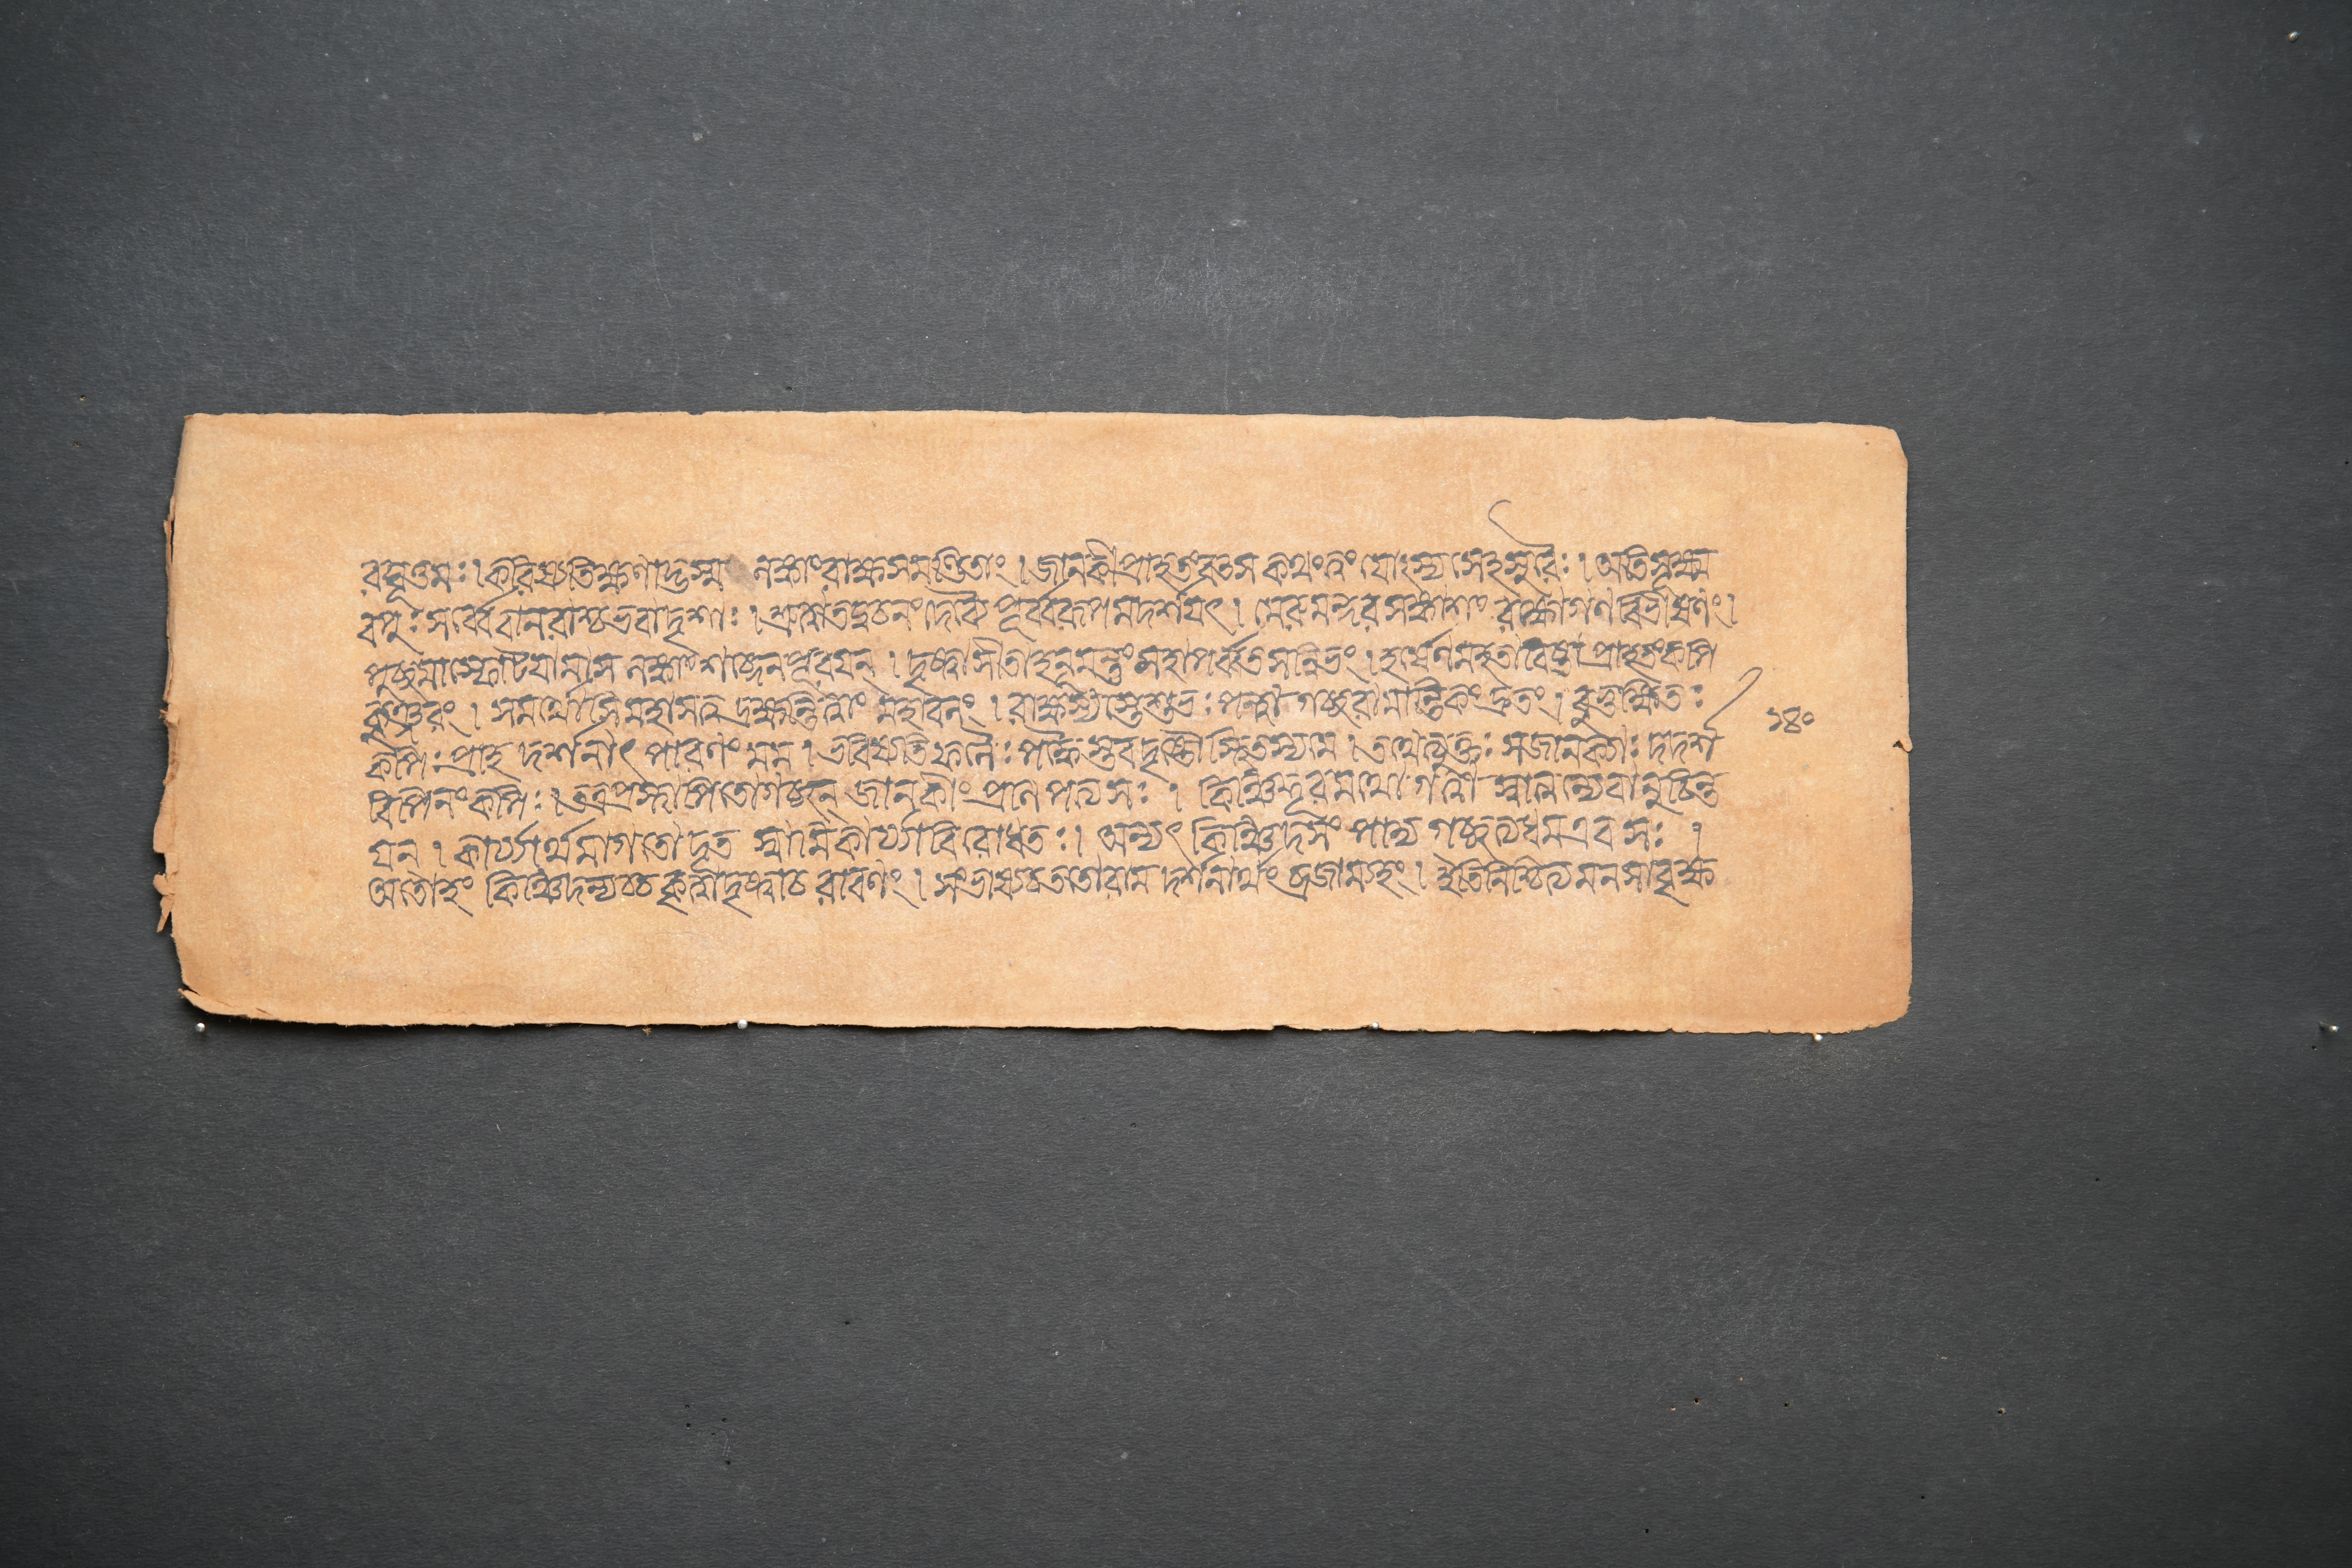 রঘূত্তমঃ। করিষ্যতি ক্ষণাদ্ভস্ম লঙ্কাং রাক্ষসমণ্ডিতাং। জানকী প্রাহ তং বত্স কথং ত্বং যোৎস্যসেহসুরৈঃ। অতিসূক্ষ্ম
বপুঃ সর্ব্বে বানরাশ্চ ভবাদৃশাঃ। শ্রুত্বা তদ্বচনং দেব্যৈ পূর্ব্বরূপমদর্শয়ৎ। মেরুমন্দরসঙ্কাশং রক্ষোগণ বিভীষণং।
পুচ্ছমাস্ফোটয়ামাস লঙ্কাং শব্দেন পূরয়ন্। দৃষ্ট্বা সীতা হনূমন্তং মহাপর্ব্বতসন্নিভং। হর্ষেণ মহতাবিষ্টা প্রাহ তং কপি
কুঞ্জরং। সমর্থোসি মহাসত্ত্ব দ্রক্ষ্যন্তি ত্বাং মহাবলং। রাক্ষস্যস্তে শুভঃ পন্থা গচ্ছ রামান্তিকং দ্রুতং। বুভুক্ষিতঃ
কপিঃ প্রাহ দর্শনাৎ পারণং মম। ভবিষ্যতি ফলৈঃ পক্কৈস্তব দৃষ্টৌ স্থিতস্য মে। তথেত্যুক্তঃ স জানক্যাঃ দদর্শ
বিপিনং কপিঃ। তত্র প্রস্থাপিতো গচ্ছন্ জানকীং প্রণিপত্য সঃ। কিঞ্চিদ্দূরমথো গত্বা স্বাত্মন্যেবানুচিন্ত
য়ন্। কার্য্যার্থমাগতো দূত স্বামিকার্য্যাবিরোধতঃ। অন্যৎ কিঞ্চিদসংপাদ্য গচ্ছত্যধম এব সঃ।
অতোহং কিঞ্চিদন্যচ্চ কৃত্বা দৃষ্ট্বাচ রাবণং। সংভাষ্য চ ততো রাম দর্শনার্থং ব্রজাম্যহং। ইতি নিশ্চিত্য মনসা বৃক্ষ
১৪০